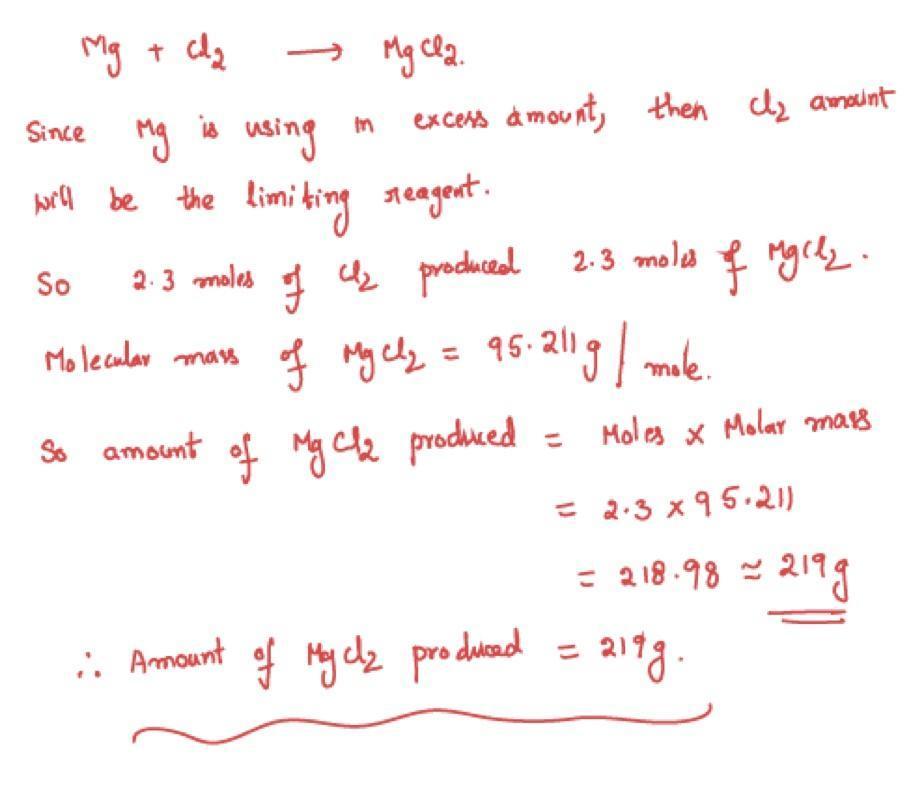 Mg + Cl2 ⟶ MgCl2.
Since Mg is using in excess amount, then Cl2 amount
will be the limiting reagent.
So 2.3 moles of Cl2 produced 2.3 moles of MgCl2.
Molecular mass of MgCl2 = 95.211g / mole.
So amount of MgCl2 produced = Moles x Molar mass
= 2.3 x 95.211
= 218.98 ≃ 219g
∴ Amount of MgCl2 produced = 219g.